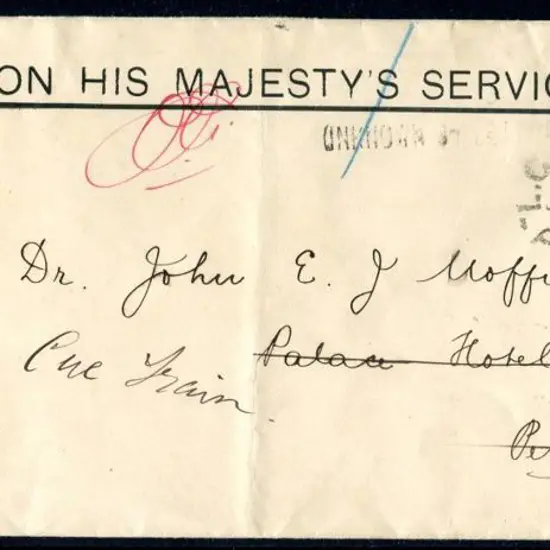 ON HIS MAJESTY'S SERVIC
UNKNOWN
Dr. John E. J Moffi
Cue Train. Palace Hotel
Pe